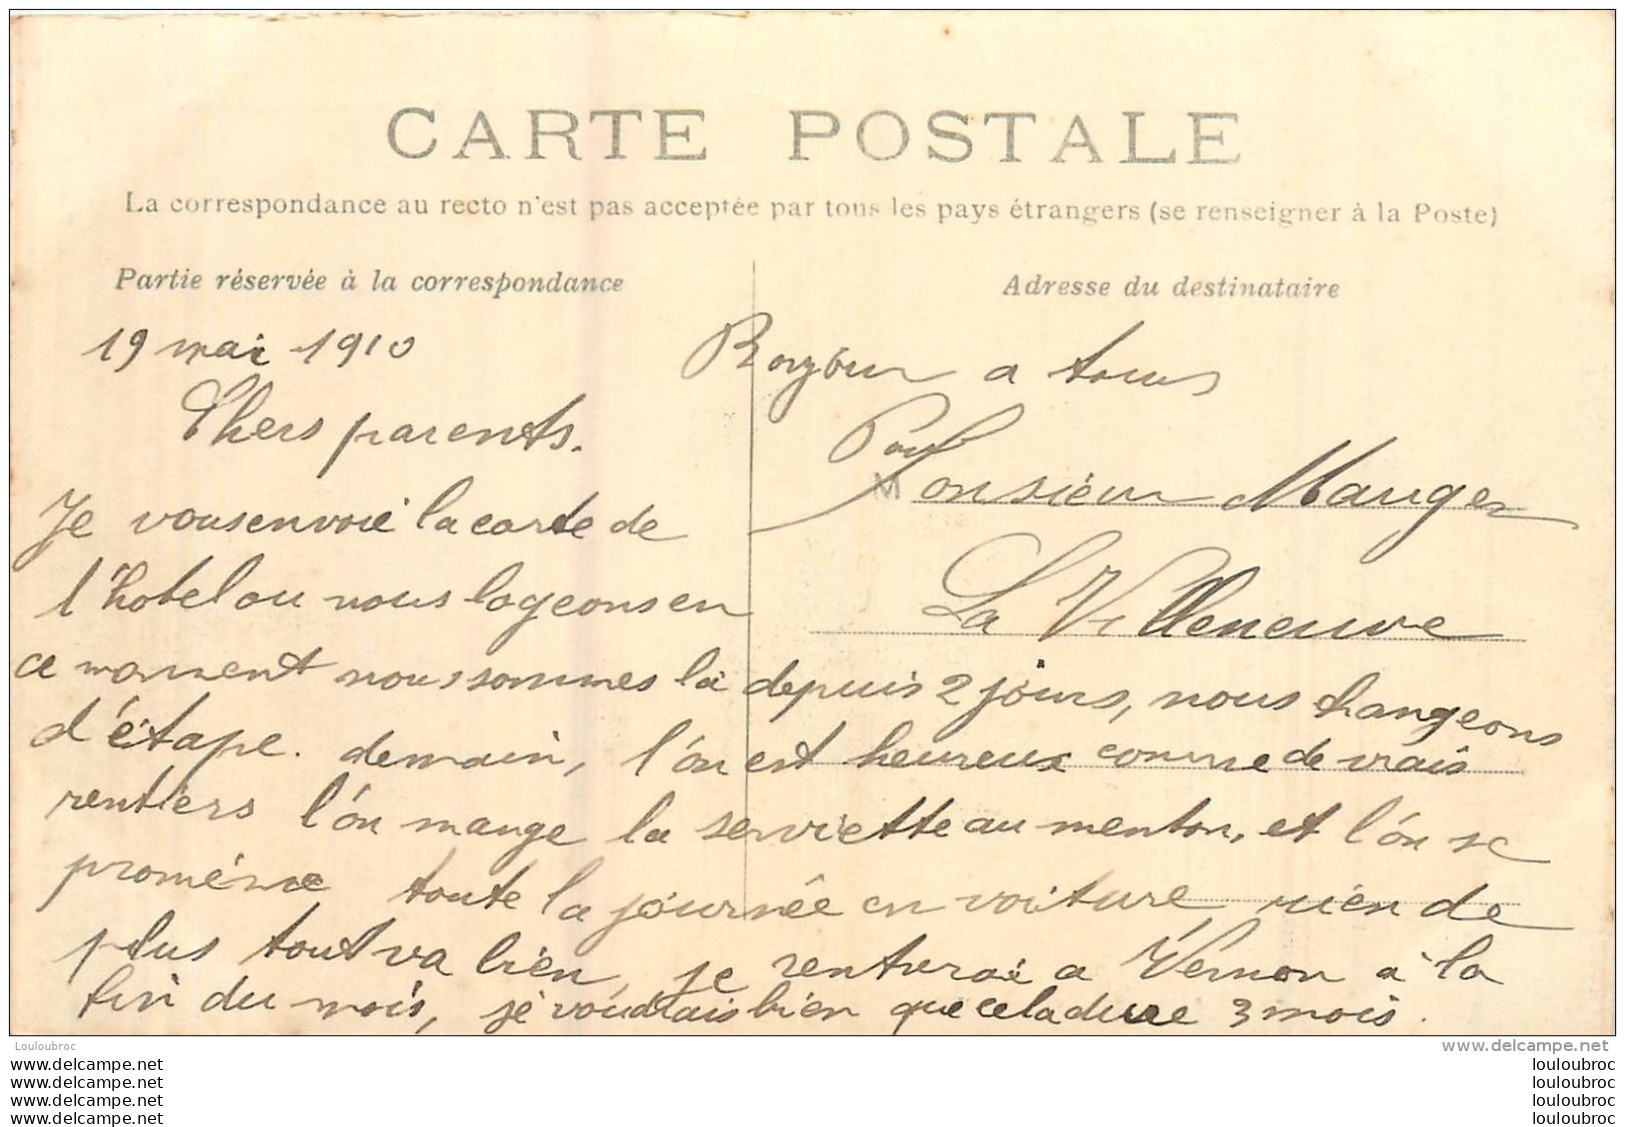 CARTE POSTALE
La correspondance au recto n'est pas acceptée par tous les pays étrangers (se renseigner à la Poste)
Partie réservée à la correspondance
Adresse du destinataire
19 mai 1910
Chers parents.
Je vous envoie la carte de
l'hotel ou nous logeons en
ce moment nous sommes là depuis 2 jours, nous changeons
d'étape. demain, l'on est heureux comme de vrais
rentiers l'on mange la serviette au menton, et l'on se
promène toute la journée en voiture rien de
plus tout va bien, je rentrerai a Vernon à la
fin du mois, je voudrais bien que cela dure 3 mois.
Bonjour a tous
Paul
Monsieur Mauger
La Villeneuve
Louloubroc
www.delcampe.net
www.delcampe.net
www.delcampe.net
www.delcampe.net
www.delcampe.net
louloubroc
louloubroc
louloubroc
louloubroc